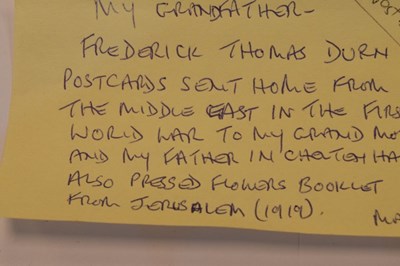 MY GRANDFATHER-
FREDERICK THOMAS DURN
POSTCARDS SENT HOME FROM
THE MIDDLE EAST IN THE FIRS
WORLD WAR TO MY GRAND MO
AND MY FATHER IN CHELTENHA
ALSO PRESSED FLOWERS BOOKLET
FROM JERUSALEM (1919).
MA